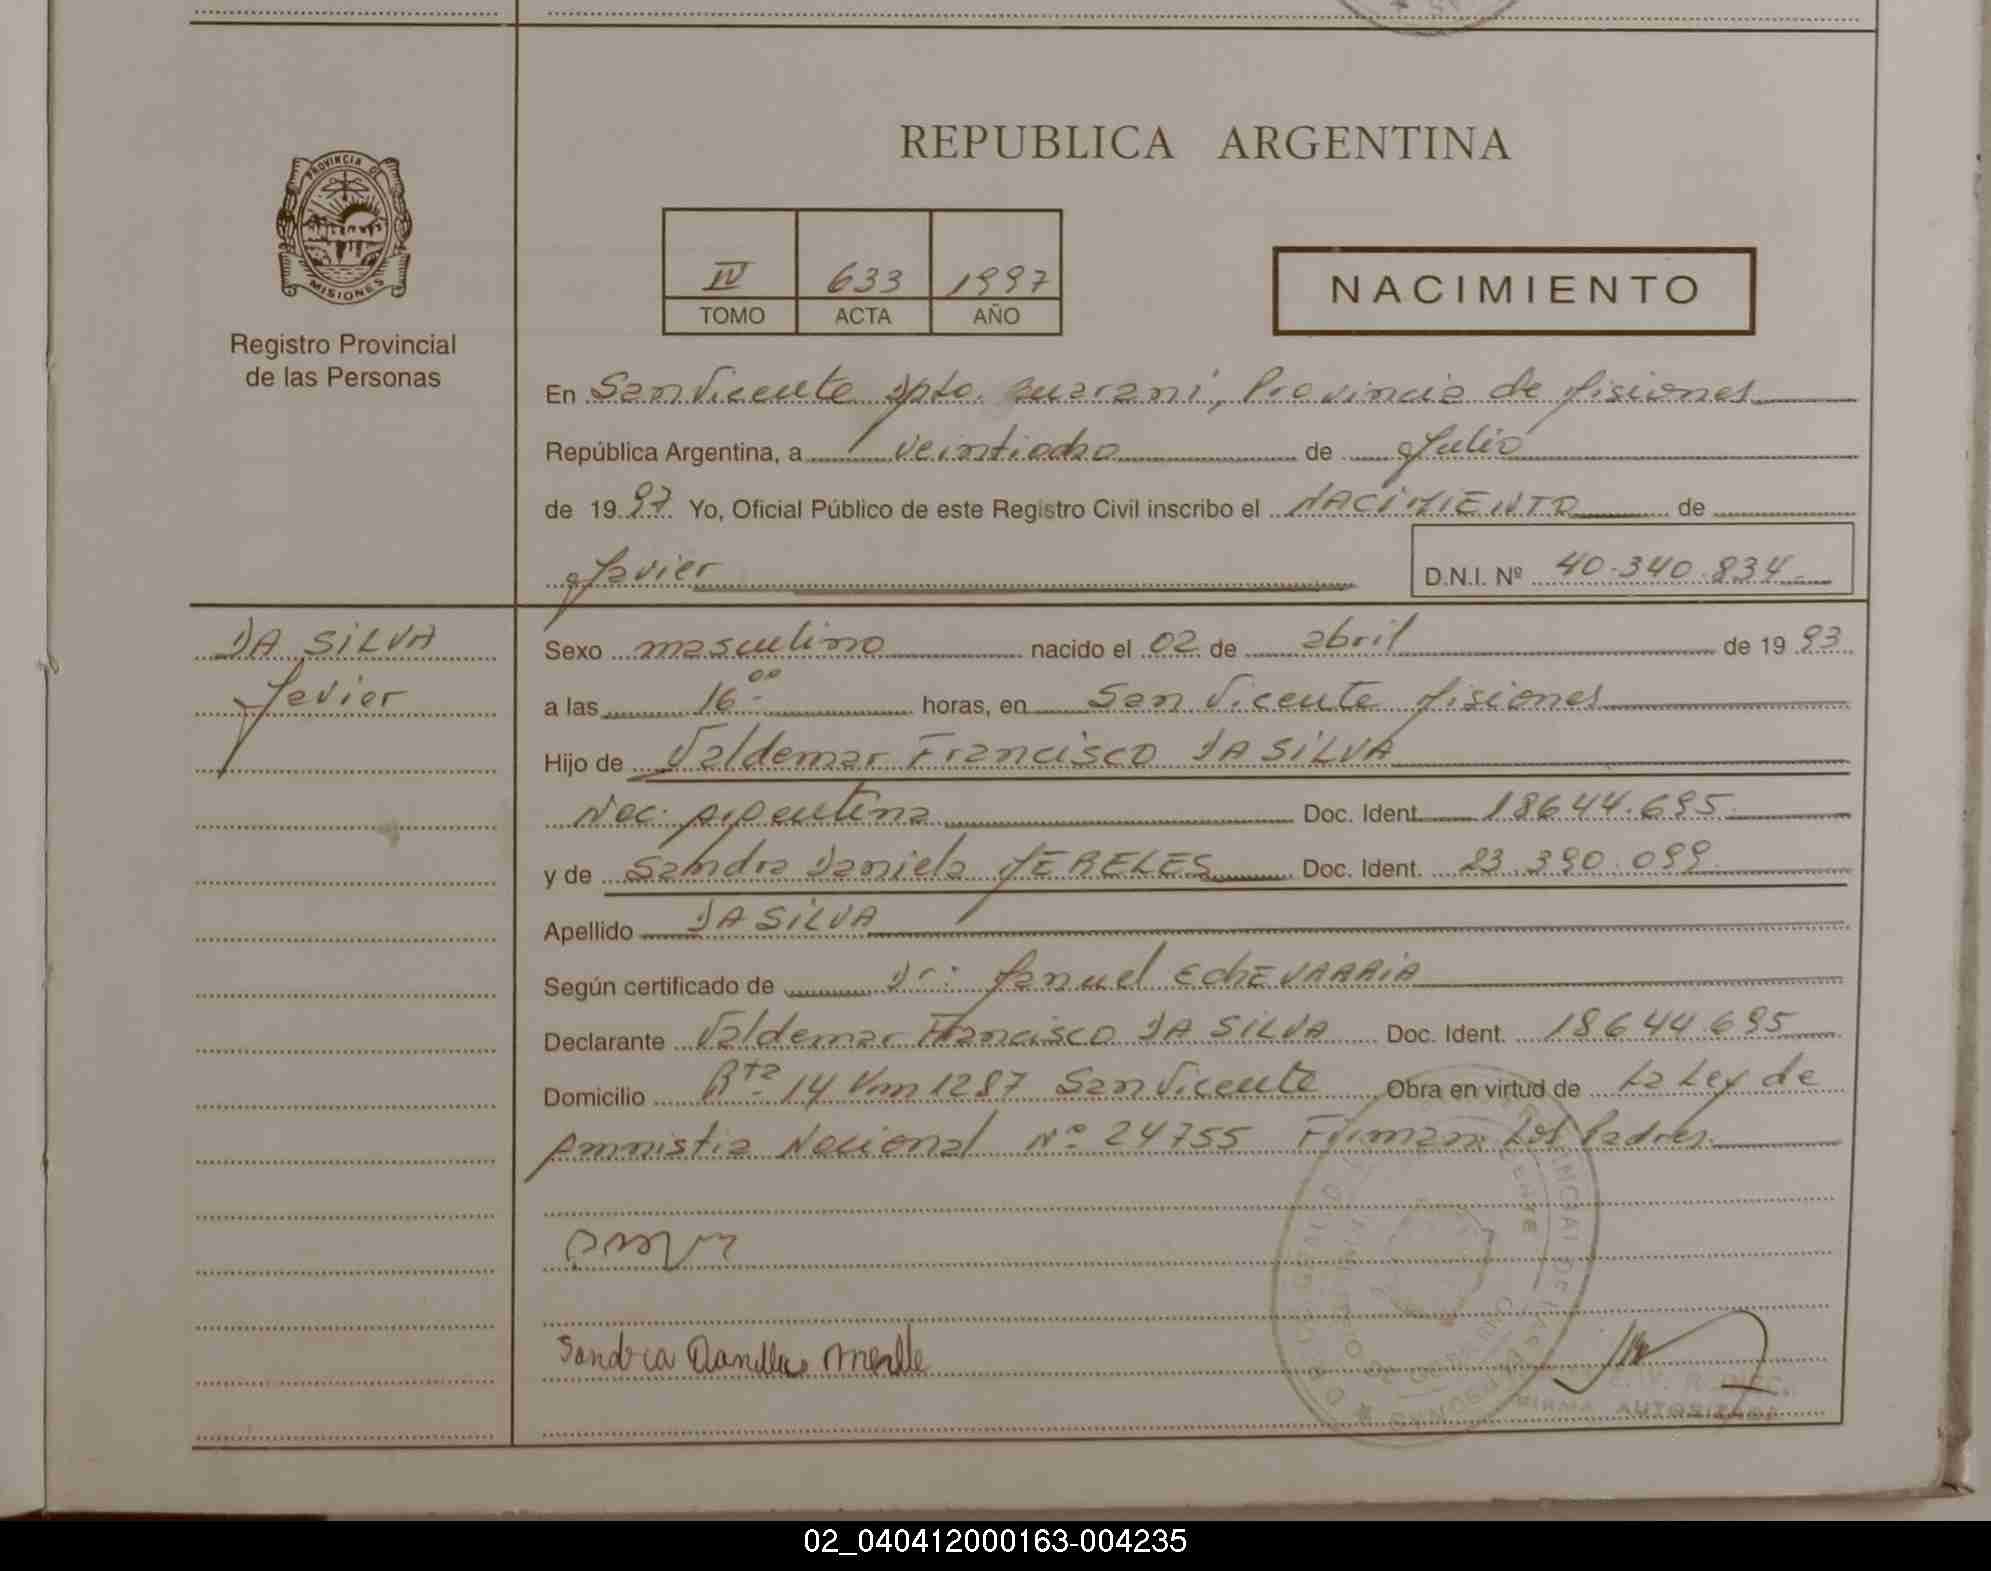 REPUBLICA ARGENTINA
PROVINCIA DE
MISIONES
Registro Provincial
de las Personas
IV 633 1997
TOMO ACTA AÑO
NACIMIENTO
En San Vicente Dpto. Guaraní, Provincia de Misiones
República Argentina, a veintiocho de Julio
de 1997 Yo, Oficial Público de este Registro Civil inscribo el NACIMIENTO de
Javier D.N.I. Nº 40.340.834
DA SILVA
Javier
Sexo masculino nacido el 02 de abril de 1993
a las 16.00 horas, en San Vicente Misiones
Hijo de Valdemar Francisco DA SILVA
Nac. Argentina Doc. Ident. 18644.695
y de Sandra Daniela MERELES Doc. Ident. 23.390.099
Apellido DA SILVA
Según certificado de Dr: Manuel EchEVARRIA
Declarante Valdemar Francisco DA SILVA Doc. Ident. 18644.695
Domicilio Rta 14 Km 1287 San Vicente Obra en virtud de La Ley de
Amnistia Nacional Nº 24755 Firman: Los Padres.
Sandra
FIRMA AUTORIZADA
02_040412000163-004235